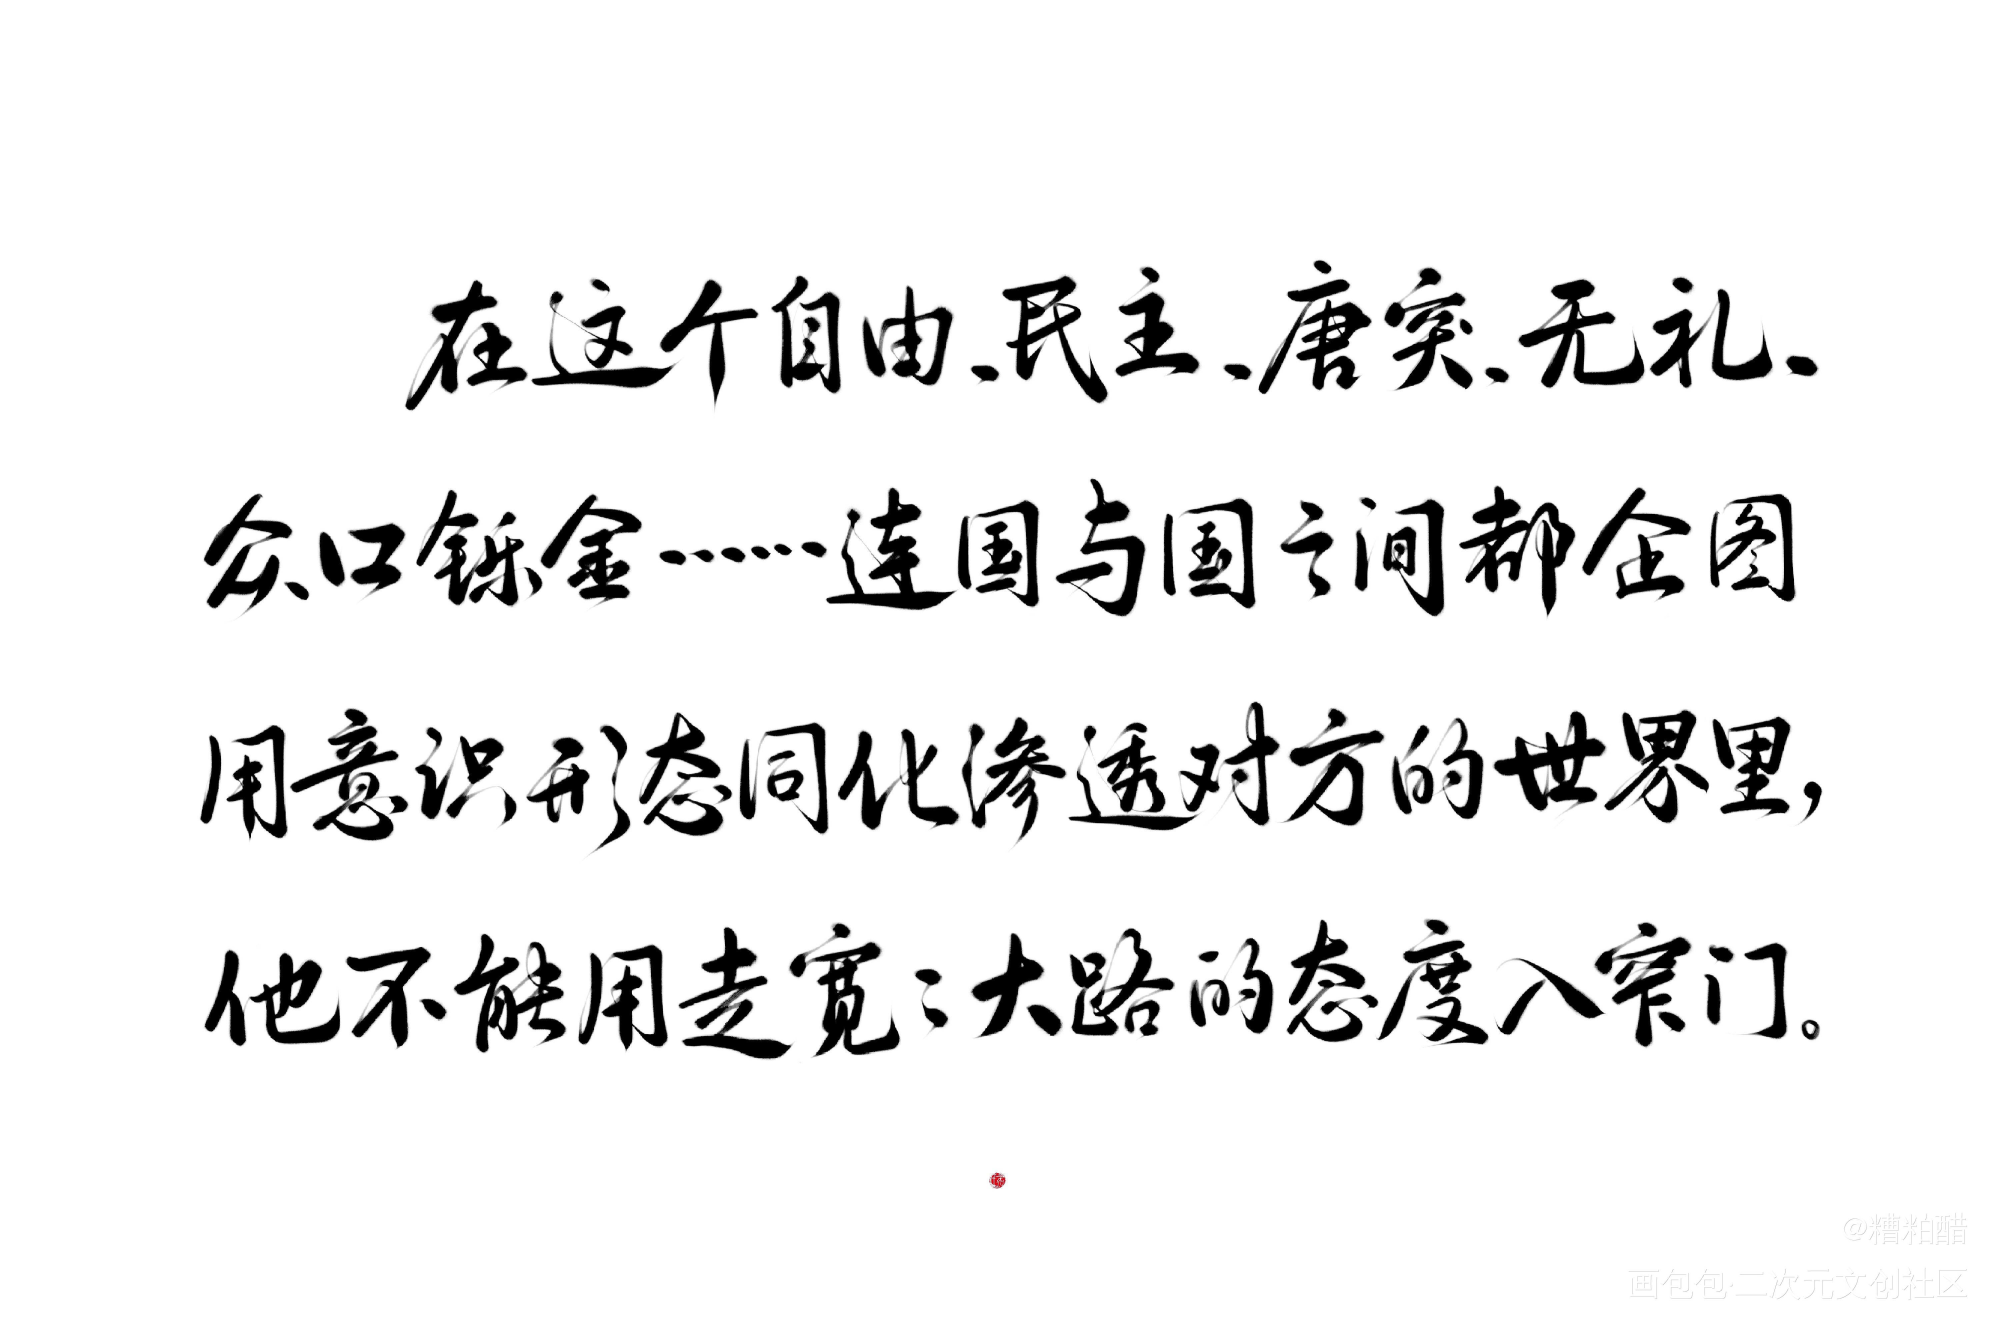 在这个自由、民主、唐突、无礼、
众口铄金……连国与国之间都企图
用意识形态同化渗透对方的世界里，
他不能用走宽宽大路的态度入窄门。
@糟粕醋
画包包·二次元文创社区